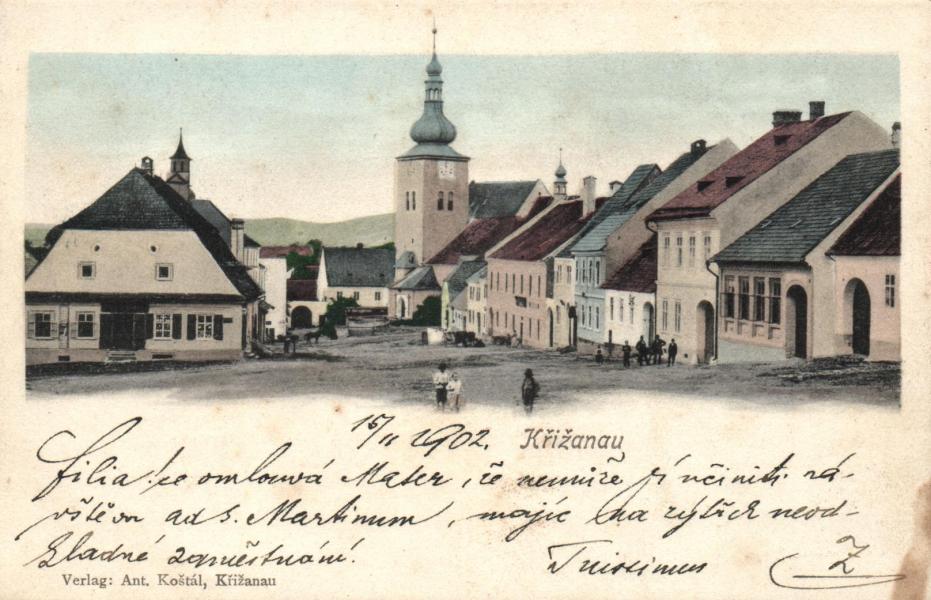 15/11 1902. Křižanau
Filia! se omlouvá Mater, že nemůže jí učiniti ná-
vštěvu ad S. Martinum, majíc na zýtřek neod-
kladné zaměstnání.
Verlag: Ant. Koštál, Křižanau